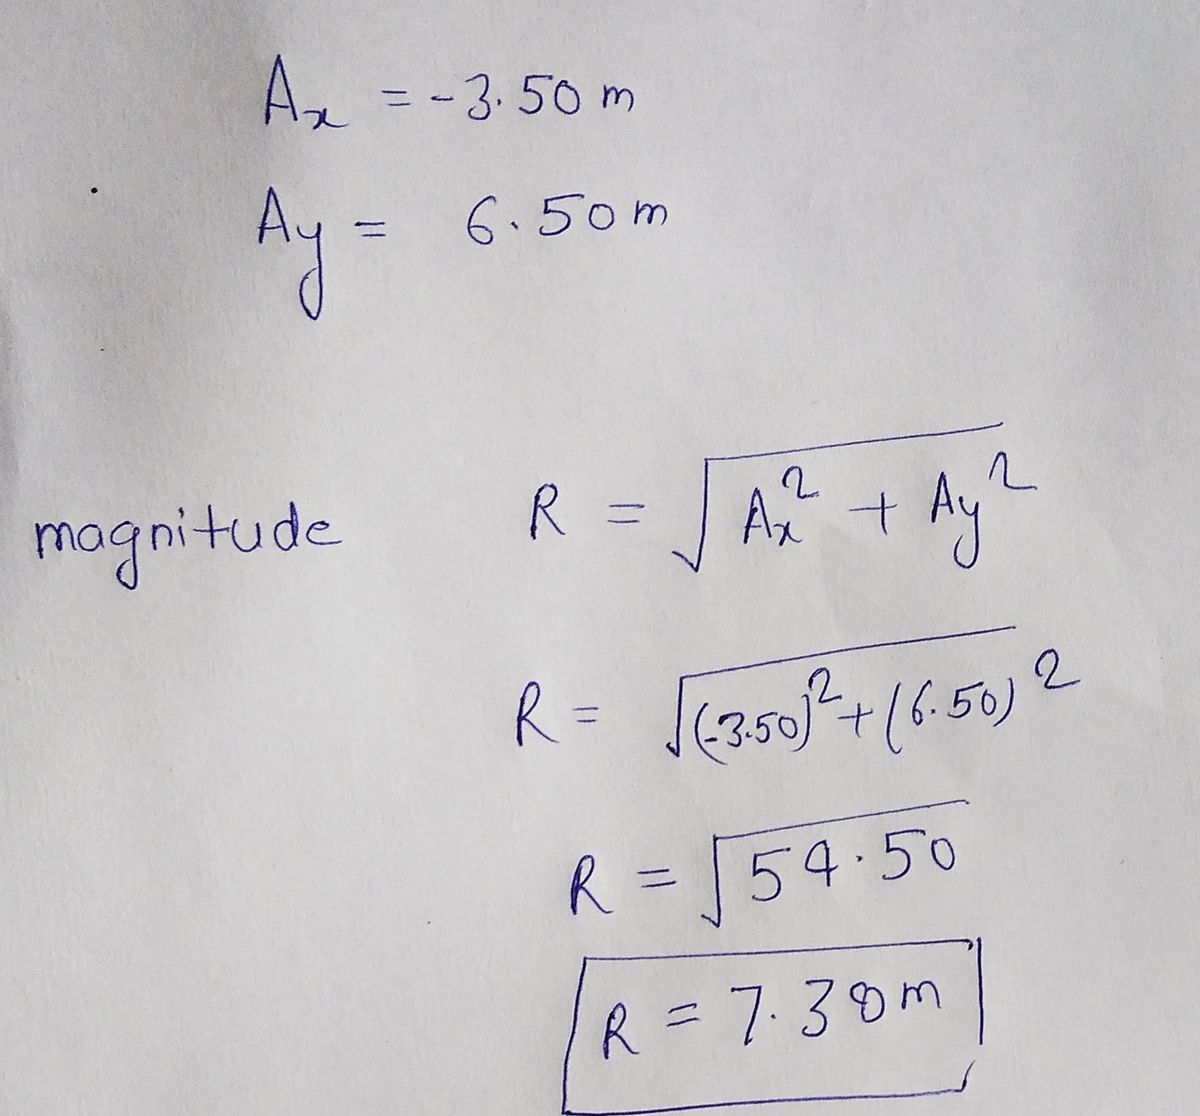 Ax = -3.50 m
Ay = 6.50 m
magnitude R = √(Ax² + Ay²)
R = √((-3.50)² + (6.50)²)
R = √54.50
R = 7.38 m